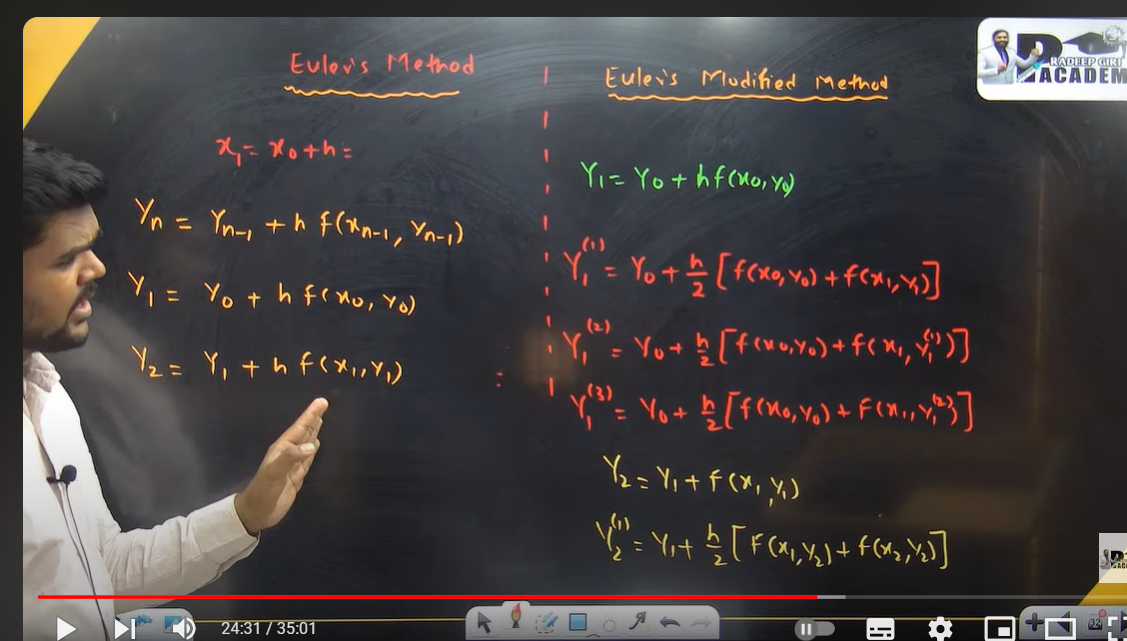 Euler's Method
x₁ = x₀ + h =
Yₙ = Yₙ₋₁ + h f(xₙ₋₁, Yₙ₋₁)
Y₁ = Y₀ + h f(x₀, Y₀)
Y₂ = Y₁ + h f(x₁, Y₁)
Euler's Modified Method
Y₁ = Y₀ + h f(x₀, Y₀)
Y₁⁽¹⁾ = Y₀ + h/2 [f(x₀, Y₀) + f(x₁, Y₁)]
Y₁⁽²⁾ = Y₀ + h/2 [f(x₀, Y₀) + f(x₁, Y₁⁽¹⁾)]
Y₁⁽³⁾ = Y₀ + h/2 [f(x₀, Y₀) + f(x₁, Y₁⁽²⁾)]
Y₂ = Y₁ + f(x₁, Y₁)
Y₂⁽¹⁾ = Y₁ + h/2 [f(x₁, Y₂) + f(x₂, Y₂)]
RADEEP GIRI
ACADEM
24:31 / 35:01